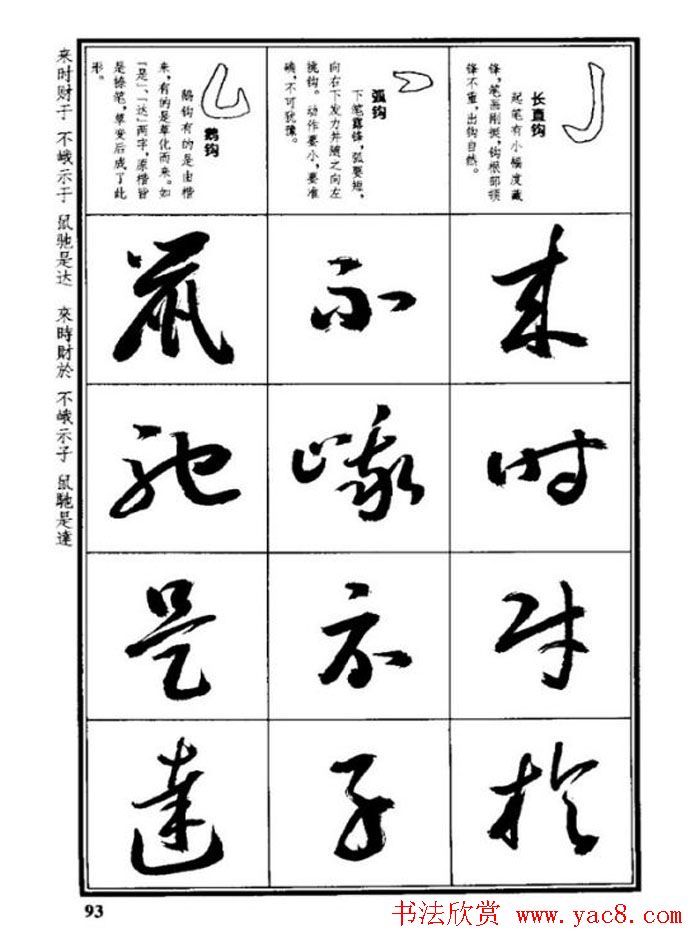 长直钩
起笔有小幅度藏
锋,笔画刚挺,钩根部顿
锋不重,出钩自然。
来
时
财
於
弧钩
下笔露锋,弧要短,
向右下发力并随之向左
挑钩。动作要小,要准
确,不可犹豫。
不
峨
示
子
鹅钩
鹅钩有的是由楷
来,有的是草化而来。如
“是”、“达”两字,原楷皆
是捺笔,草变后成了此
形。
鼠
驰
是
達
来时财于 不峨示子 鼠驰是达 來時財於 不峨示子 鼠馳是達
93
书法欣赏 www.yac8.com